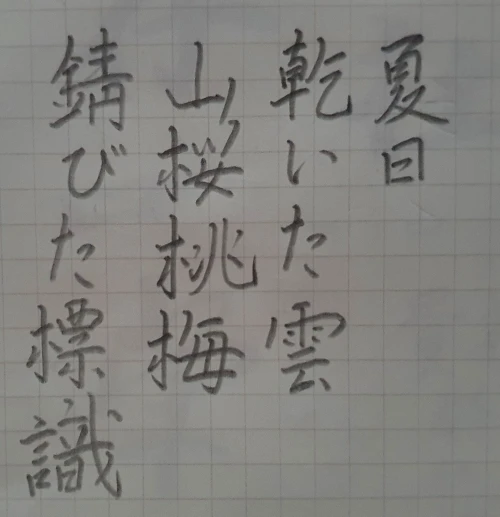 夏日
乾いた雲
山桜桃梅
錆びた標識